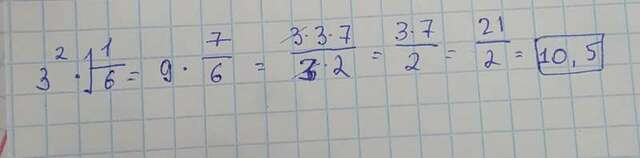 3² · 1 1/6 = 9 · 7/6 = 3·3·7/3·2 = 3·7/2 = 21/2 = 10,5